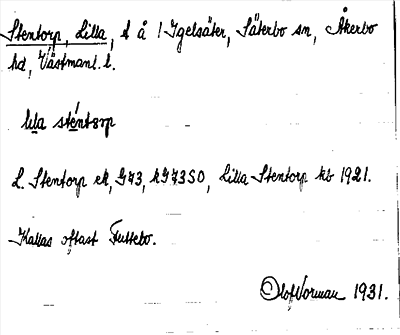 Stentorp, Lilla, t å ! Igelsäter, Säterbo sn, Åkerbo
hd, Västmanl. l.
lila sténtorp
L. Stentorp ek, G73, kG73SO, Lilla Stentorp kb 1921.
Kallas oftast Futtebo.
Olof Norman 1931.